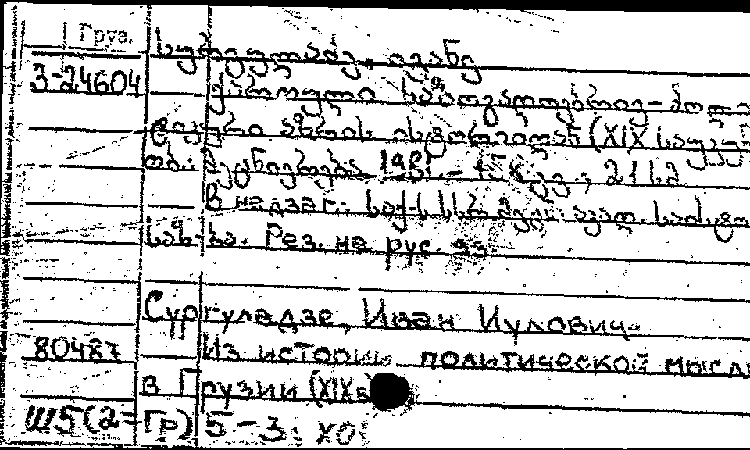 Груз.
სურგულაძე, ივანე
3-24604
ქართული საზოგადოებრივ-პოლი
ტიკური აზრის ისტორიიდან (XIX საუკუნ
თბ.: მეცნიერება 1981. 212
В надзаг.: საქ. სსრ მეცნ. აკად.
Рез. на рус. яз.
Сургуладзе, Иван Иулович.
80487 Из истории политической мысли
в Грузии (XIXв
Ш5(2=Гр)5-3; ХО